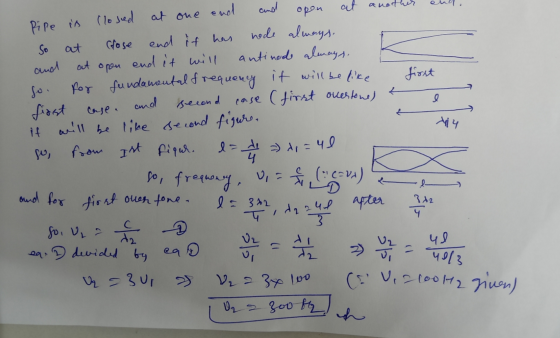 Pipe is closed at one end and open at another end.
So at close end it has node always.
and at open end it will antinode always.
so. For fundamental frequency it will be like
first case. and second case (first overtone)
it will be like second figure.
first
l
λ/4
so, from Ist figur. l = λ1/4 ⇒ λ1 = 4l
so, frequency, ν1 = c/λ1 (∵ c=νλ) ①
l
and for first overtone. l = 3λ2/4, λ2 = 4l/3 after 3λ2/4
so. ν2 = c/λ2 ②
eq. ② divided by eq ① ν2/ν1 = λ1/λ2 ⇒ ν2/ν1 = 4l/4l/3
ν2 = 3ν1 ⇒ ν2 = 3×100 (∵ ν1 = 100Hz given)
ν2 = 300Hz